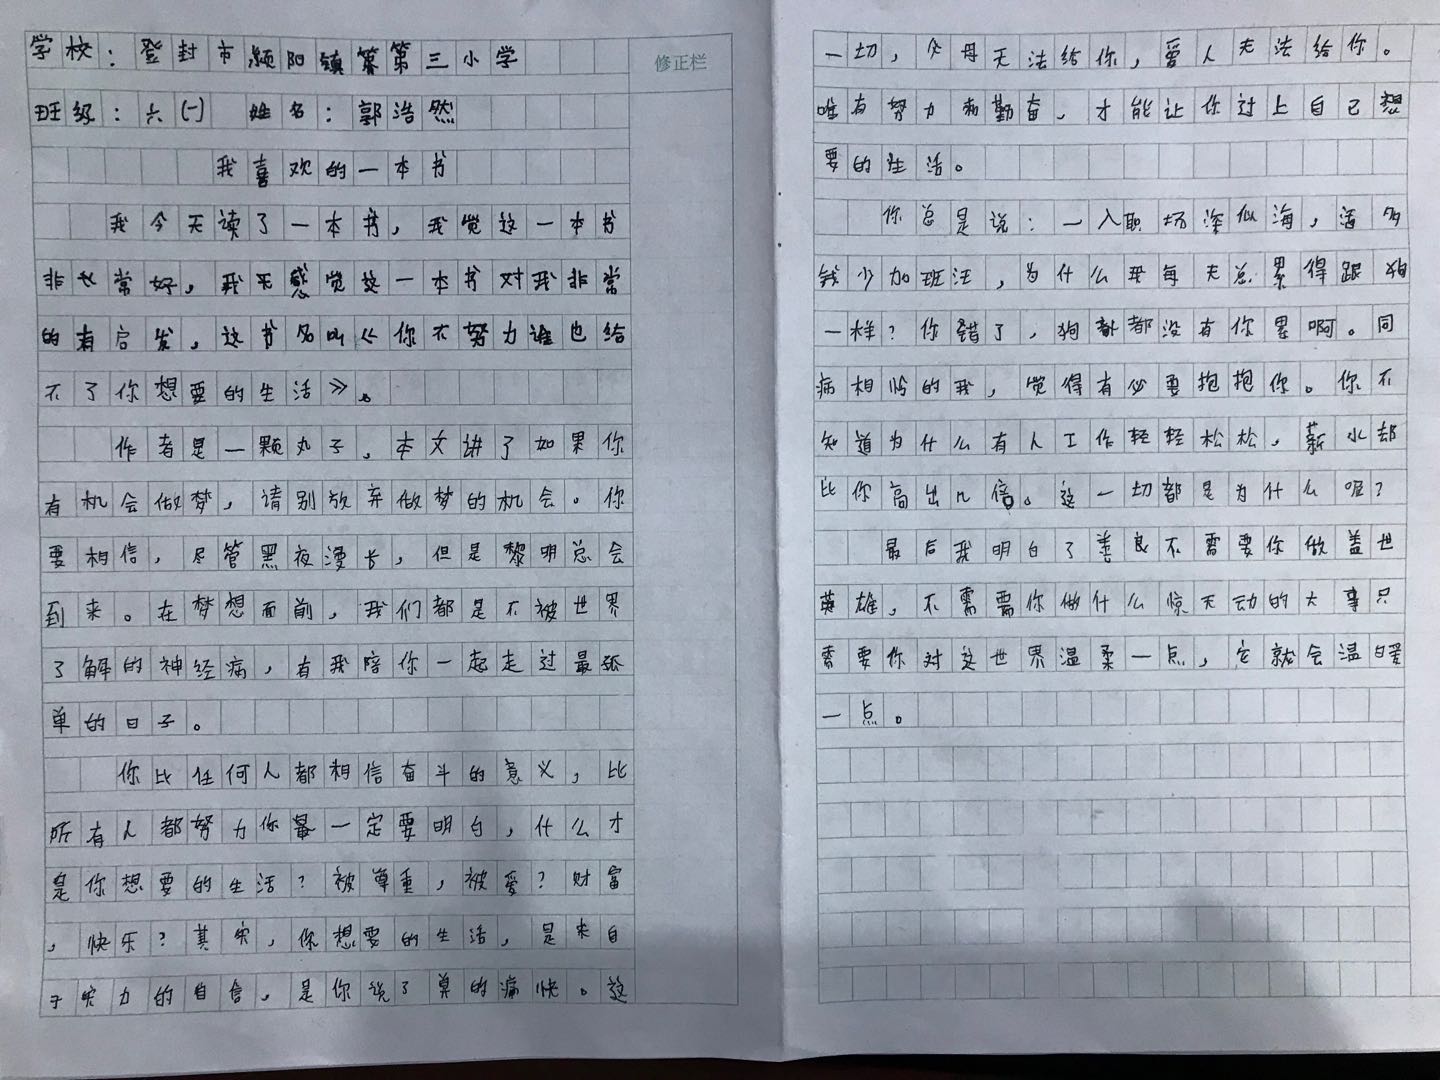 学校：登封市颍阳镇第三小学
修正栏
班级：六(一) 姓名：郭浩然
我喜欢的一本书
我今天读了一本书，我觉这一本书
非常好，我感觉这一本书对我非常
的有启发，这书名叫《你不努力谁也给
不了你想要的生活》。
作者是一颗丸子，本文讲了如果你
有机会做梦，请别放弃做梦的机会。你
要相信，尽管黑夜漫长，但是黎明总会
到来。在梦想面前，我们都是不被世界
了解的神经病，有我陪你一起走过最孤
单的日子。
你比任何人都相信奋斗的意义，比
所有人都努力你一定要明白，什么才
是你想要的生活？被尊重，被爱？财富
，快乐？其实，你想要的生活，是来自
于实力的自信，是你说了算的痛快。这
一切，父母无法给你，爱人无法给你。
唯有努力和勤奋，才能让你过上自己想
要的生活。
你总是说：一入职场深似海，活多
钱少加班汪，为什么我每天总累得跟狗
一样？你错了，狗都没有你累啊。同
病相怜的我，觉得有必要抱抱你。你不
知道为什么有人工作轻轻松松，薪水却
比你高出几倍。这一切都是为什么呢？
最后我明白了善良不需要你做盖世
英雄，不需需你做什么惊天动的大事只
需要你对这世界温柔一点，它就会温暖
一点。